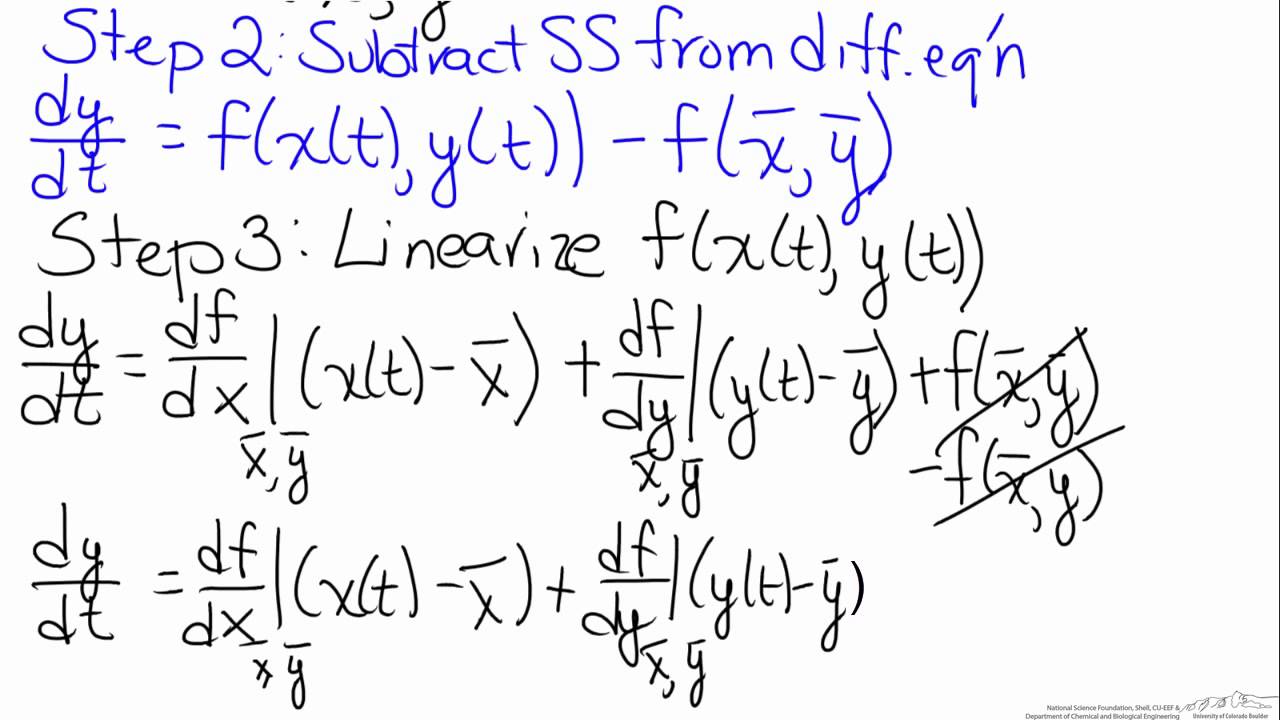 Step 2: Subtract SS from diff. eq'n
dy/dt = f(x(t), y(t)) - f(x̄, ȳ)
Step 3: Linearize f(x(t), y(t))
dy/dt = df/dx|x̄, ȳ (x(t) - x̄) + df/dy|x̄, ȳ (y(t) - ȳ) + f(x̄, ȳ)
- f(x̄, y)
dy/dt = df/dx|x̄, ȳ (x(t) - x̄) + df/dy|x̄, ȳ (y(t) - ȳ)
National Science Foundation, Shell, CU-EEF &
Department of Chemical and Biological Engineering
University of Colorado Boulder